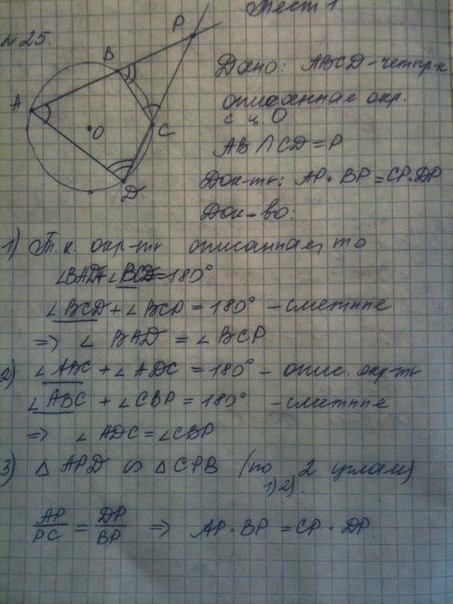 Тест 1
№25.
P
B
A
O
C
D
Дано: ABCD - четыр-к
описанная окр.
с ц O
AB ∩ CD = P
Док-ть: AP · BP = CP · DP
Док-во:
1) Т.к. окр-ть описанная, то
∠BAD + ∠BCD = 180°
∠BCD + ∠BCP = 180° - смежные
=> ∠ BAD = ∠ BCP
2) ∠ABC + ∠ADC = 180° - опис. окр-ть
∠ABC + ∠CBP = 180° - смежные
=> ∠ADC = ∠CBP
3) △ APD ∽ △ CPB (по 2 углам)
1) 2)
AP/PC = DP/BP => AP · BP = CP · DP